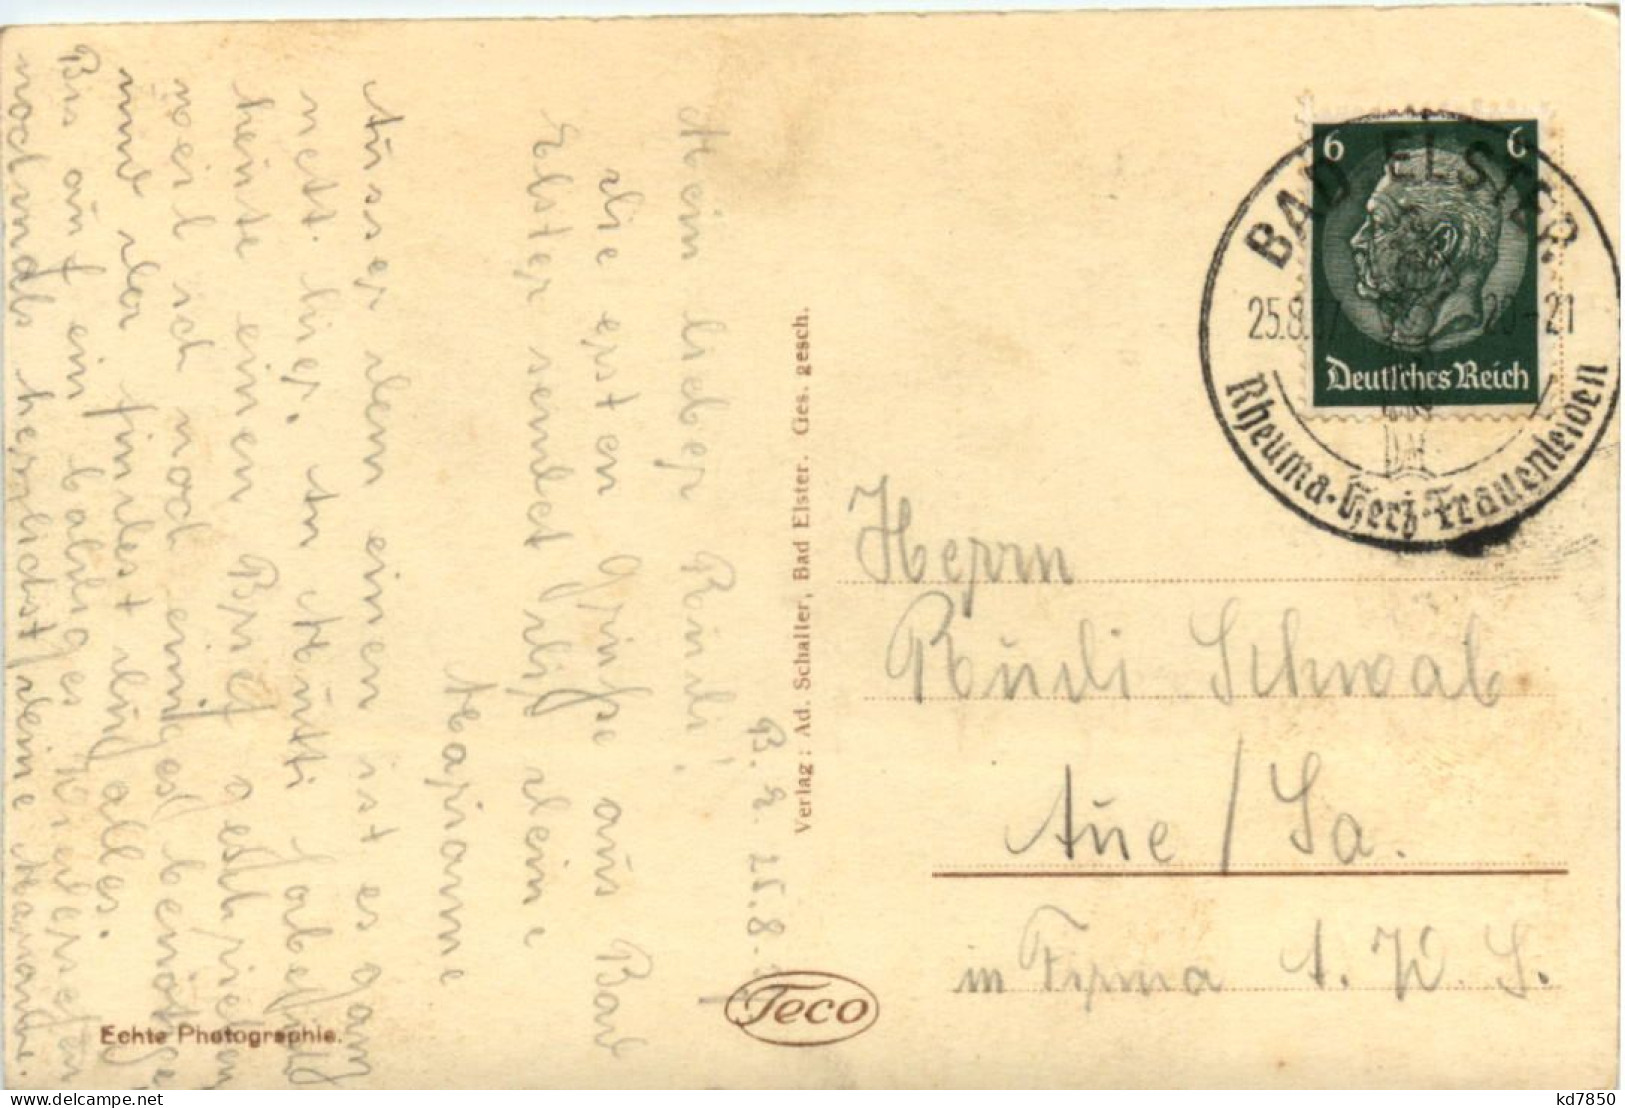 B. E. 25.8.
Mein lieber Rudi!
die ersten Grüße aus Bad
Elster sendet dir deine
Marianne
Ausser dem einen ist es ganz
nett hier. An Mutti habe ich
heute einen Brief geschrieben
weil ich noch einiges benötige
und der findest du alles.
Bis auf ein baldiges Wiedersehen
nochmals herzlichst deine Marianne.
Echte Photographie.
Verlag: Ad. Schaller, Bad Elster. Ges. gesch.
Teco
6 6
Deutsches Reich
BAD ELSTER
25.8.37 20-21
Rheuma-Herz-Frauenleiden
Herrn
Rudi Schwab
Aue / Sa.
in Firma A. W. S.
kd7850